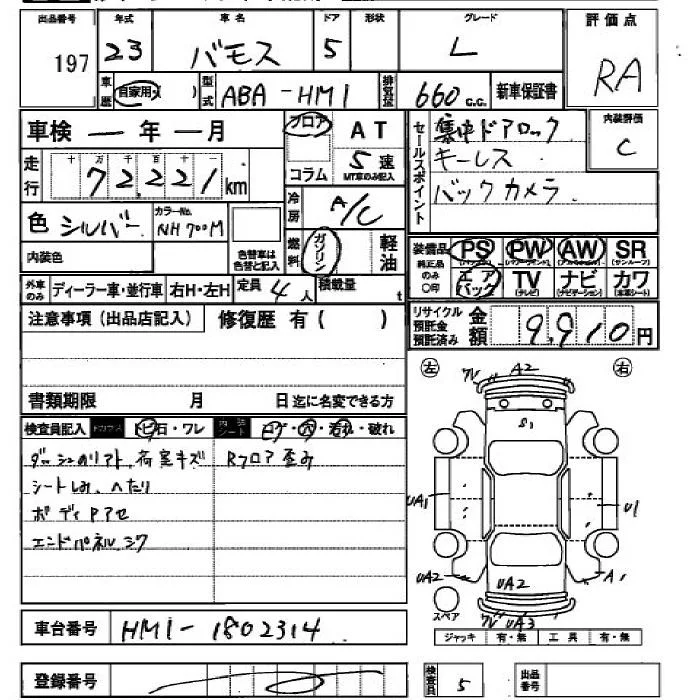 出品番号 197
年式 23
車名 バモス
ドア 5
形状
グレード L
評価点 RA
車歴 自家用
型式 ABA-HM1
排気量 660 c.c.
新車保証書
車検 ー 年 ー 月
フロア AT
コラム 5速
MT車のみ記入
セールスポイント
集中ドアロック
キーレス
バックカメラ
内装評価 C
走行 十 万 千 百 十 一
72,221 km
冷房 A/C
色 シルバー
カラーNo. NH700M
色替車は色替と記入
燃料 ガソリン 軽油
内装色
装備品 純正品のみ○印
PS PW AW SR
エアバッグ TV ナビ カワ
外車のみ ディーラー車・並行車 右H・左H 定員 4人 積載量 t
リサイクル預託金預託済み 金額 9,910円
注意事項(出品店記入) 修復歴 有( )
書類期限 月 日迄に名変できる方
検査員記入 トビ石・ワレ 内張シート コゲ・穴・汚れ・破れ
ダッシュのリアト、荷室キズ Rフロア歪み
シートしみ、へたり
ボディPアセ
エンドパネルシワ
左 右
ワレ A2
S1
UA1
U1
UA2 UA2 A1
ワレ UA3
スペア
ジャッキ 有・無 工具 有・無
車台番号 HM1-1802314
登録番号
検査員 5
出品番号